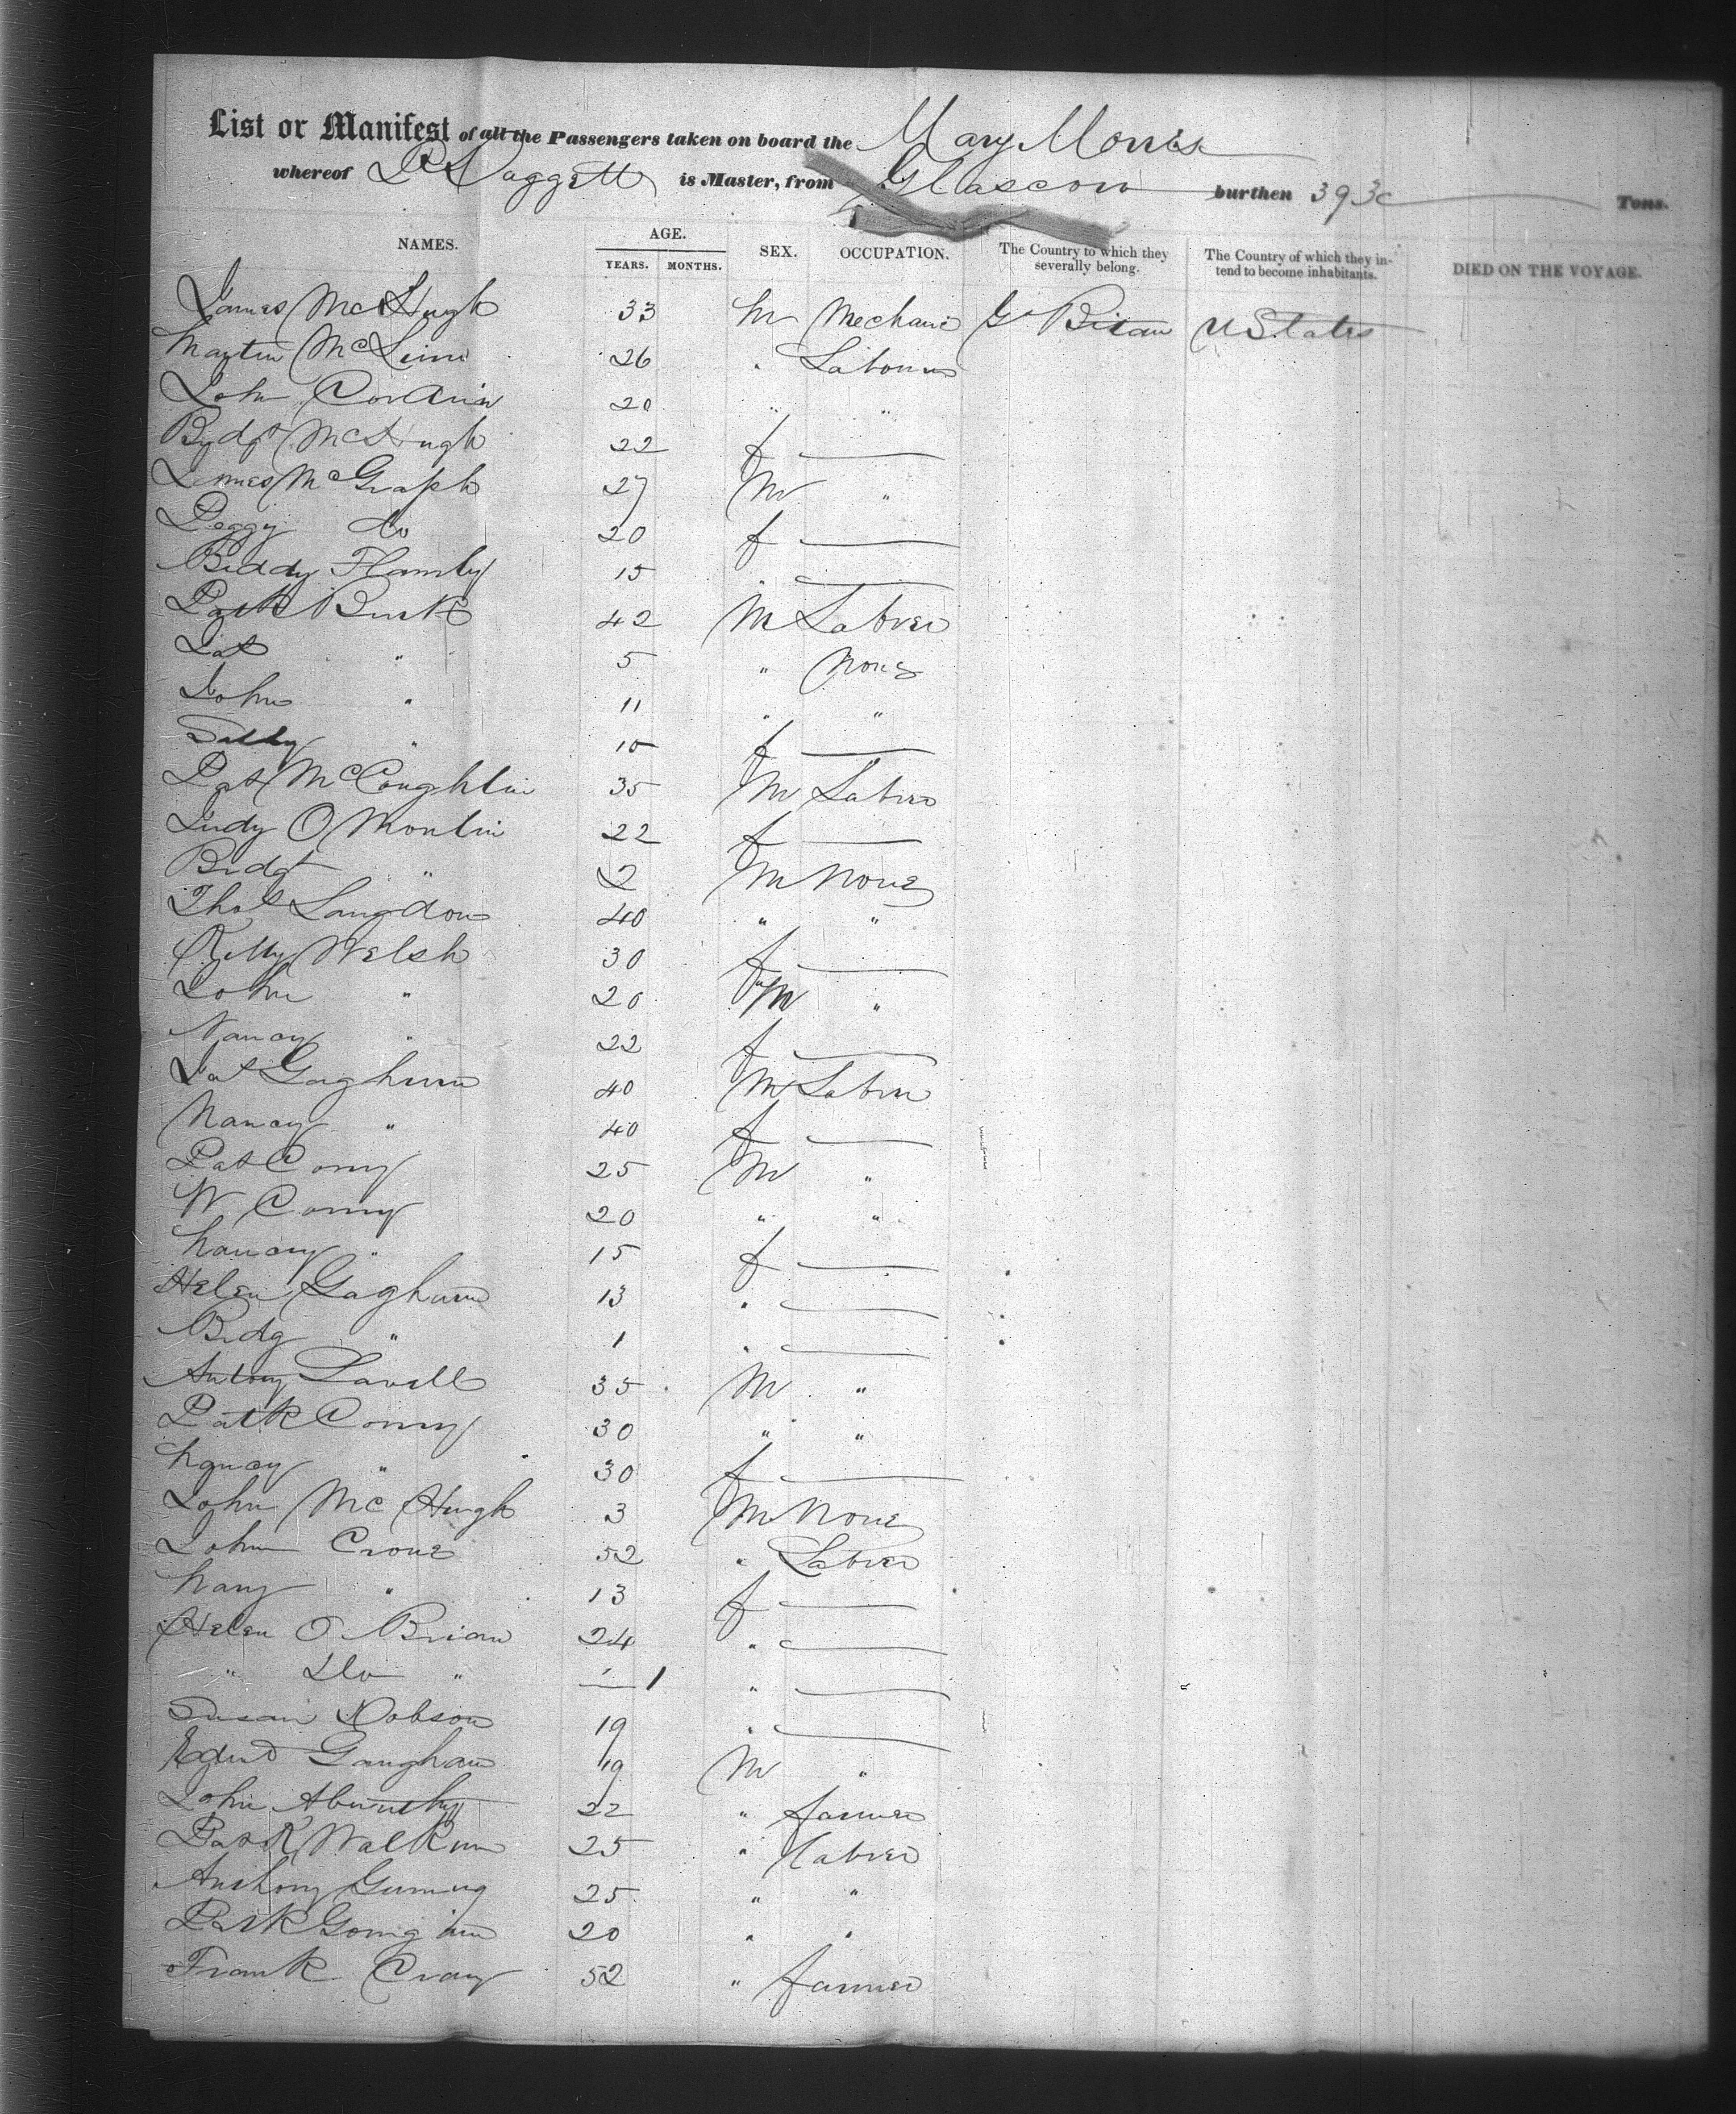 List or Manifest of all the Passengers taken on board the Mary Morris
whereof Daggett is Master, from Glascow burthen 393 Tons.
NAMES. AGE. YEARS. MONTHS. SEX. OCCUPATION. The Country to which they severally belong. The Country of which they intend to become inhabitants. DIED ON THE VOYAGE.
James McHugh 33 M Mechanic G Bitain U States
Martin 26 Labourer
John 20 " "
Bydgt McHugh 22 f —
James McGraph 27 M "
Peggy do 20 f —
Biddy 15 —
Patk Burke 42 M Labrer
Pat " 5 " None
John " 11 " "
Sally " 10 f —
Pat McCoughlin 35 M Labrer
Judy O Monlin 22 f —
Bridgt " 2 M None
Thos Langdon 40 " "
Kitty Welsh 30 f —
John " 20 M "
Nancy " 22 f —
Pat Gaghum 40 M Labrer
Nancy " 40 f —
Pat Comy 25 M "
W Comy 20 " "
Nancy " 15 f —
Helen Gaghum 13 " —
Bridg " 1 " —
Antony Lavell 35 M "
Patk Comy 30 " "
Nancy " 30 f —
John Mc Hugh 3 M None
John Crone 52 " Labrer
Mary " 13 f —
Helen O Brian 24 " —
" Do " 1 " —
Susan Dobson 19 " —
Edwd Gaughan 19 M "
John 22 " farmer
Patk 25 " Labrer
Anthony 25 " "
Patk 20 " "
Frank Cray 52 " farmer